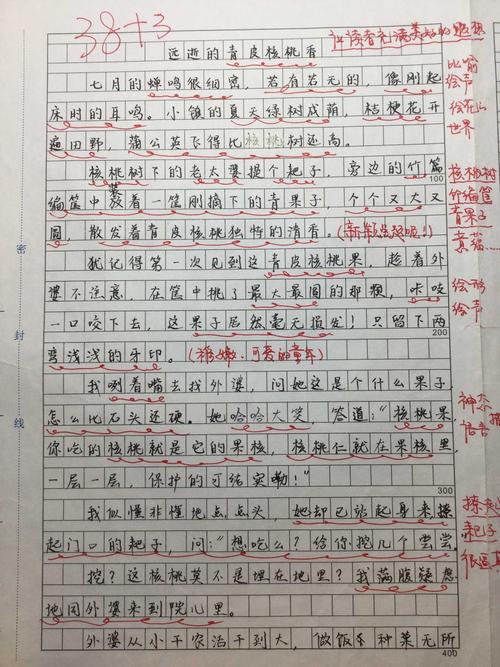 38+3
让读者充满美好的遐想
远逝的青皮核桃香
七月的蝉鸣很细密，若有若无的，像刚起
比喻
床时的耳鸣。小镇的夏天绿树成荫，桔梗花开
绘声
遍田野，蒲公英飞得比核桃树还高。
世界
核桃树下的老太婆摸个耙子，旁边的竹篇
核桃树
100
编筐中装着一筐刚摘下的青果子，个个又大又
竹编筐
青果子
圆，散发着青皮核桃独特的清香。
犹记得第一次见到这青皮核桃果，趁着外
婆不注意，在筐中挑了最大最圆的那颗，咔吱
绘形
绘声
一口咬下去，这果子居然毫无损发！只留下两
200
弯浅浅的牙印。（稚嫩、可爱的童年）
我咧着嘴去找外婆，问她这是个什么果子
怎么比石头还硬。她哈哈大笑 答道：“核桃果，
神态
你吃的核桃就是它的果核，核桃仁就在果核里，
语言
一层一层，保护的可结实嘞！”
300
我似懂非懂地点点头，她却已站起身来操
起门口的耙子，问：“想吃么？给你挖几个尝尝
耙子
挖？这核桃莫不是埋在地里？我满腹疑惑
很逼真
地同外婆来到院儿里。
外婆从小干农活干到大，做饭种菜无所
400
密
封
线